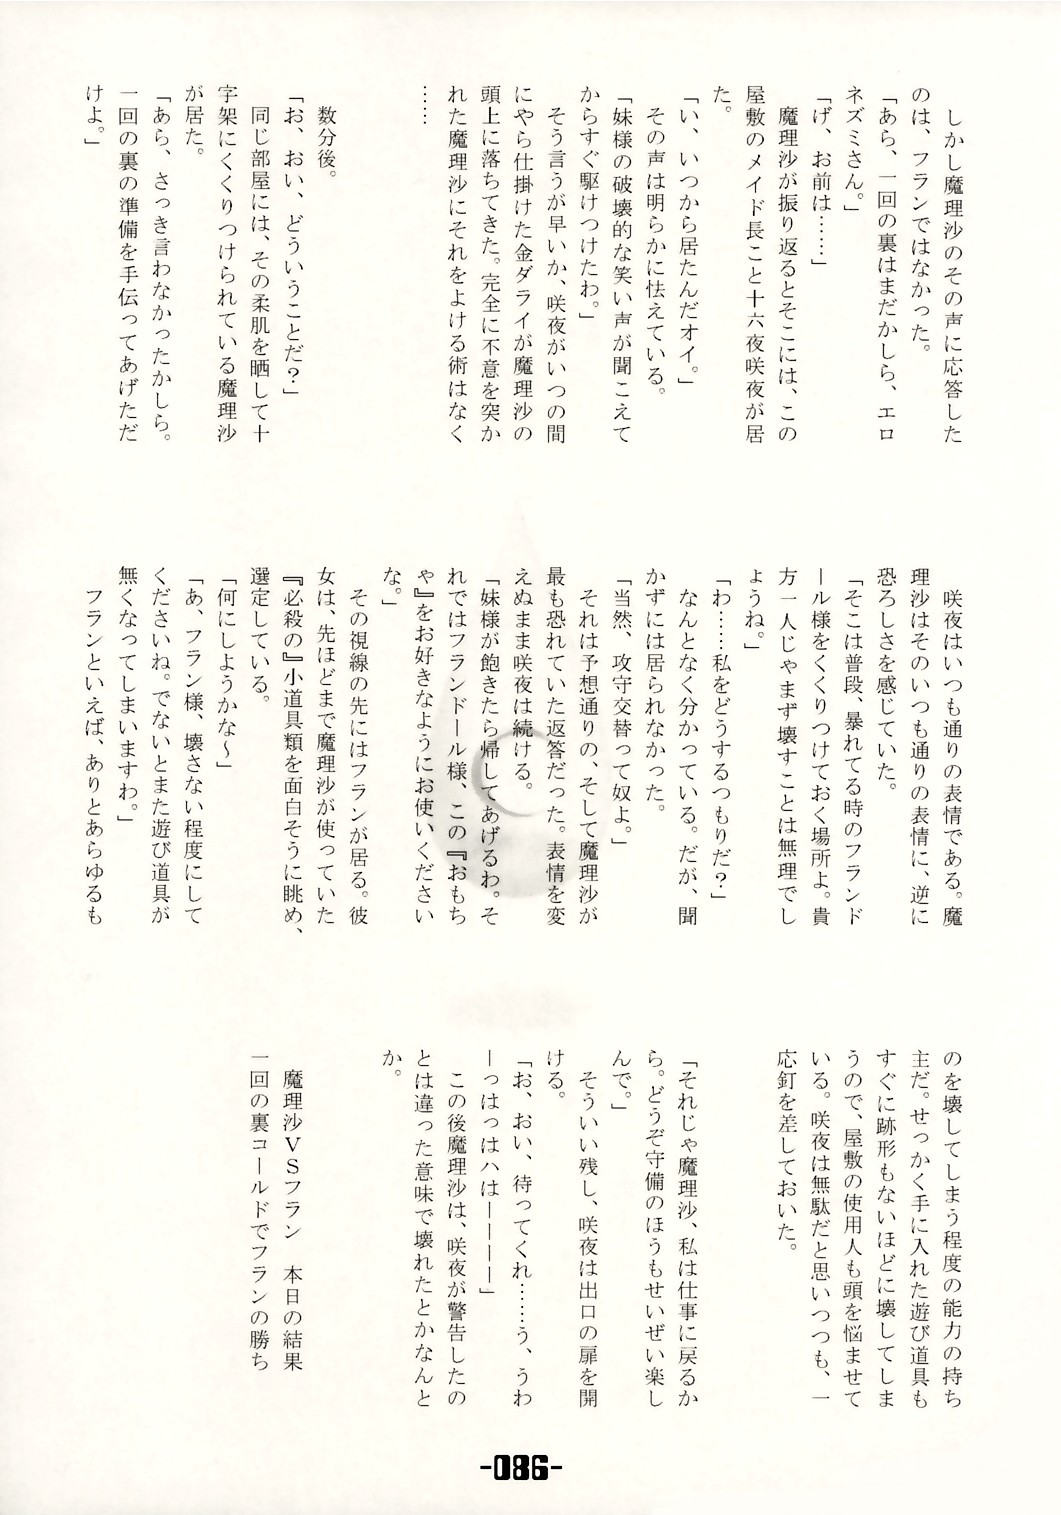 しかし魔理沙のその声に応答した
のは、フランではなかった。
「あら、一回の裏はまだかしら、エロ
ネズミさん。」
「げ、お前は……」
　魔理沙が振り返るとそこには、この
屋敷のメイド長こと十六夜咲夜が居
た。
「い、いつから居たんだオイ。」
　その声は明らかに怯えている。
「妹様の破壊的な笑い声が聞こえて
からすぐ駆けつけたわ。」
　そう言うが早いか、咲夜がいつの間
にやら仕掛けた金ダライが魔理沙の
頭上に落ちてきた。完全に不意を突か
れた魔理沙にそれをよける術はなく
……
　数分後。
「お、おい、どういうことだ？」
　同じ部屋には、その柔肌を晒して十
字架にくくりつけられている魔理沙
が居た。
「あら、さっき言わなかったかしら。
一回の裏の準備を手伝ってあげただ
けよ。」
　咲夜はいつも通りの表情である。魔
理沙はそのいつも通りの表情に、逆に
恐ろしさを感じていた。
「そこは普段、暴れてる時のフランド
ール様をくくりつけておく場所よ。貴
方一人じゃまず壊すことは無理でし
ょうね。」
「わ……私をどうするつもりだ？」
　なんとなく分かっている。だが、聞
かずには居られなかった。
「当然、攻守交替って奴よ。」
　それは予想通りの、そして魔理沙が
最も恐れていた返答だった。表情を変
えぬまま咲夜は続ける。
「妹様が飽きたら帰してあげるわ。そ
れではフランドール様、この『おもち
ゃ』をお好きなようにお使いください
な。」
　その視線の先にはフランが居る。彼
女は、先ほどまで魔理沙が使っていた
『必殺の』小道具類を面白そうに眺め、
選定している。
「何にしようかな～」
「あ、フラン様、壊さない程度にして
くださいね。でないとまた遊び道具が
無くなってしまいますわ。」
　フランといえば、ありとあらゆるも
のを壊してしまう程度の能力の持ち
主だ。せっかく手に入れた遊び道具も
すぐに跡形もないほどに壊してしま
うので、屋敷の使用人も頭を悩ませて
いる。咲夜は無駄だと思いつつも、一
応釘を差しておいた。
「それじゃ魔理沙、私は仕事に戻るか
ら。どうぞ守備のほうもせいぜい楽し
んで。」
　そういい残し、咲夜は出口の扉を開
ける。
「お、おい、待ってくれ……う、うわ
ーっはっはハはーーーー」
　この後魔理沙は、咲夜が警告したの
とは違った意味で壊れたとかなんと
か。
　魔理沙ＶＳフラン　本日の結果
一回の裏コールドでフランの勝ち
-086-